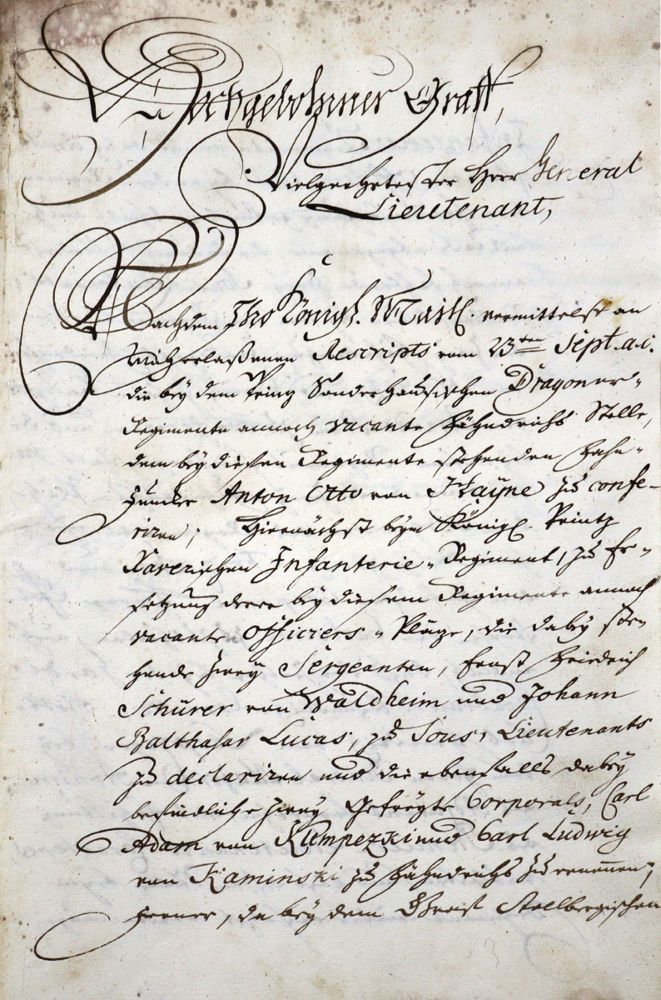 Hochgebohrner Graff,
Vielgeehrtester Herr General
Lieutenant,
Nachdem Ihro Königl. Mait. vermittelst an
mich erlaßenen Rescripts vom 23ten Sept. a.c.
die bey dem Prinz Sondershausischen Dragoner-
Regimente annoch vacante Fähndrichs Stelle,
dem bey diesen Regimente stehenden Fahn-
Juncker Anton Otto von Hayne zu confe-
riren; Hiernächst beym Königl. Printz
Xaverischen Infanterie-Regiment, zu Er-
setzung derer bey diesem Regimente annoch
vacante Officiers-Pläze, die dabey ste-
hende zwey Sergeanten, Ernst Friedrich
Schürer von Waldheim und Johann
Balthasar Lucas, zu Sous-Lieutenants
zu declariren und die ebenfalls dabey
befindliche zwey Gefreyte Corporals, Carl
Adam von Klempezki und Carl Ludwig
von Kaminski zu Fähndrichs zu ernennen;
Ferner, da bey dem Stollbergischen